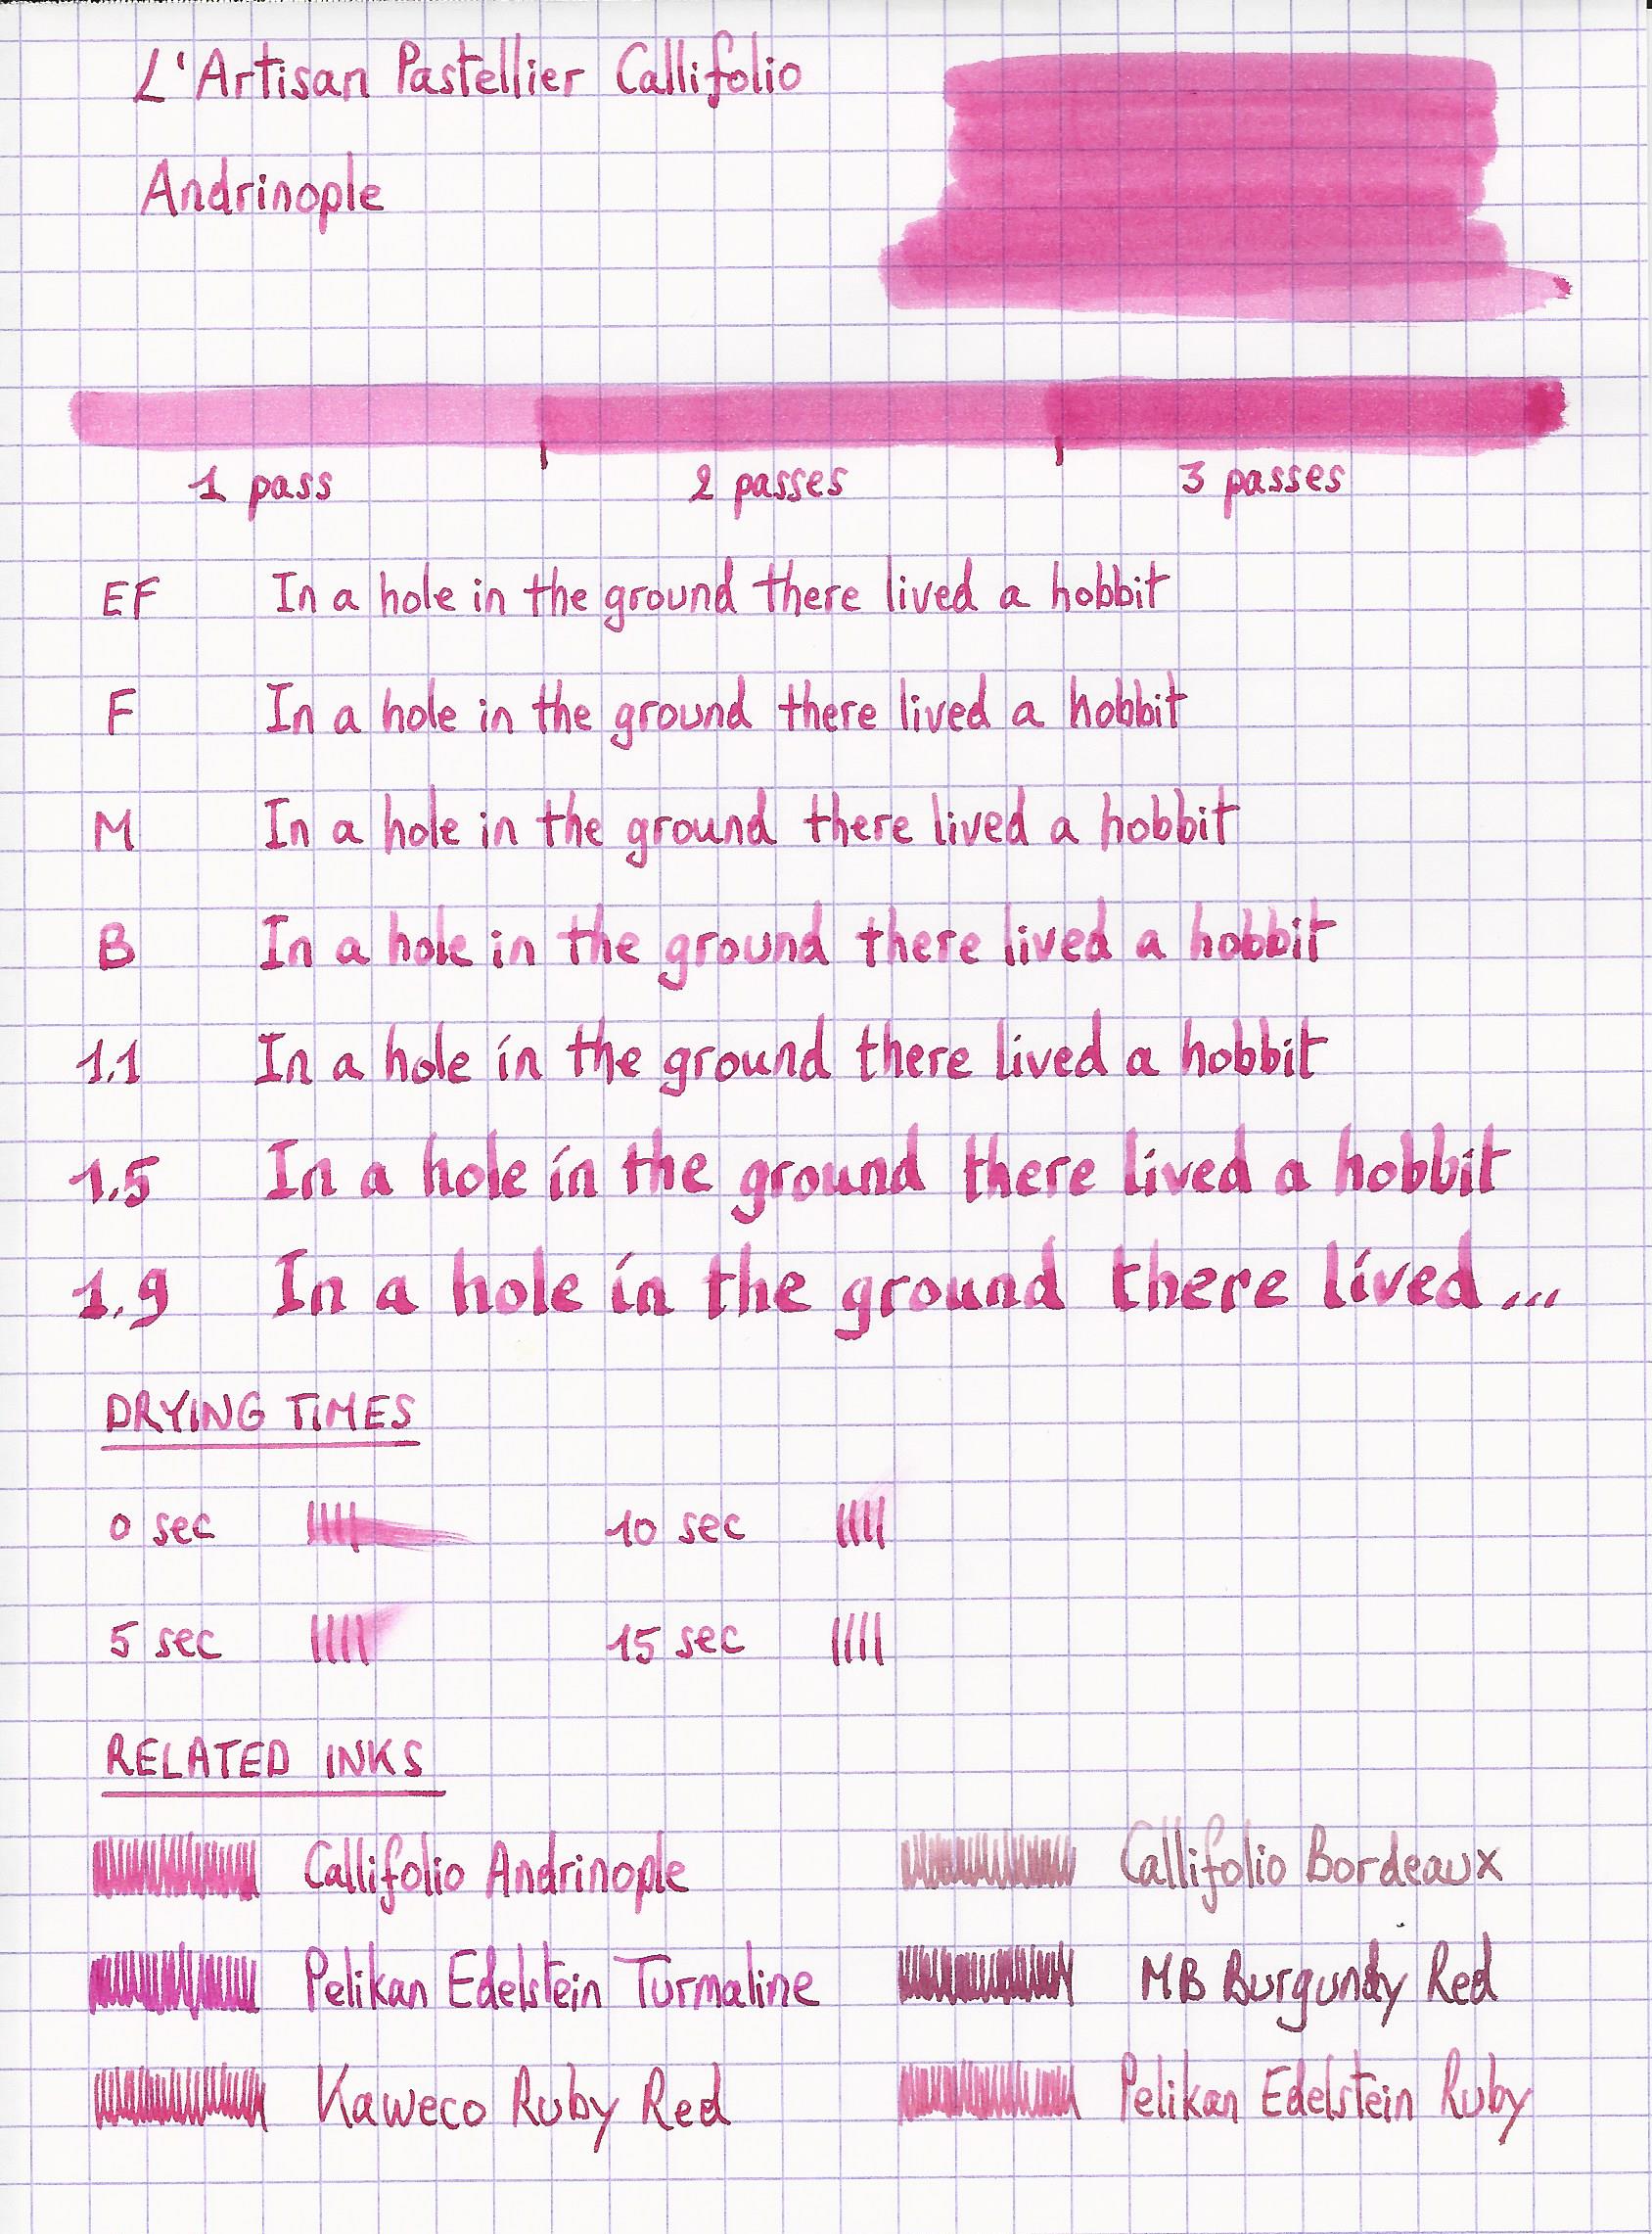 L'Artisan Pastellier Callifolio
Andrinople
1 pass 2 passes 3 passes
EF In a hole in the ground there lived a hobbit
F In a hole in the ground there lived a hobbit
M In a hole in the ground there lived a hobbit
B In a hole in the ground there lived a hobbit
1.1 In a hole in the ground there lived a hobbit
1.5 In a hole in the ground there lived a hobbit
1.9 In a hole in the ground there lived...
DRYING TIMES
0 sec 10 sec
5 sec 15 sec
RELATED INKS
Callifolio Andrinople Callifolio Bordeaux
Pelikan Edelstein Turmaline MB Burgundy Red
Kaweco Ruby Red Pelikan Edelstein Ruby